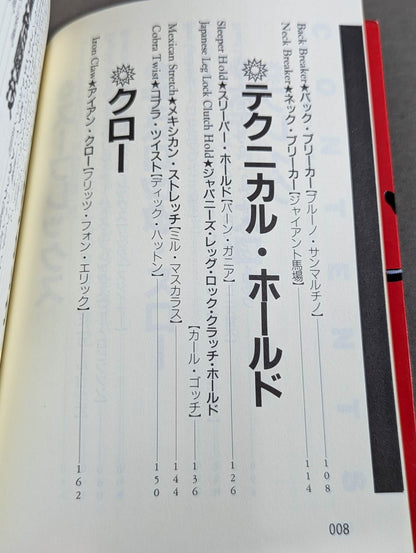 CONTENTS
Back Breaker★バック・ブリーカー[ブルーノ・サンマルチノ] 108
Neck Breaker★ネック・ブリーカー[ジャイアント馬場] 114
テクニカル・ホールド
Sleeper Hold★スリーパー・ホールド[バーン・ガニア] 126
Japanese Leg Lock Clutch Hold★ジャパニーズ・レッグ・ロック・クラッチ・ホールド
[カール・ゴッチ] 136
Mexican Stretch★メキシカン・ストレッチ[ミル・マスカラス] 144
Cobra Twist★コブラ・ツイスト[ディック・ハットン] 150
クロー
Iron Claw★アイアン・クロー[フリッツ・フォン・エリック] 162
008